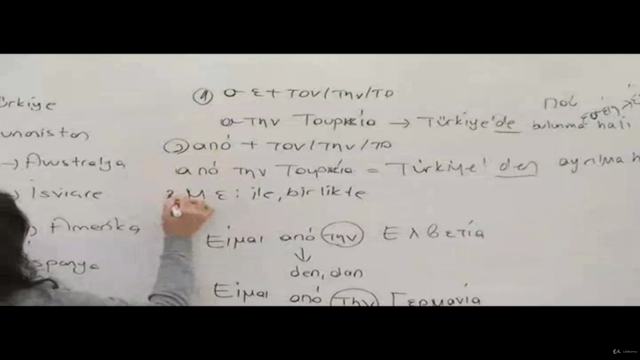 ürkiye
unanistan
→ Avustralya
→ İsviçre
Amerika
spanya
① σε + τον/την/το
σ την Τουρκία → Türkiye'de bulunma hali
Πού
② από + τον/την/το
από την Τουρκία = Türkiye'den ayrılma h
με : ile, birlikte
Είμαι από την Ελβετία
↓
den, dan
Είμαι από την Γερμανία